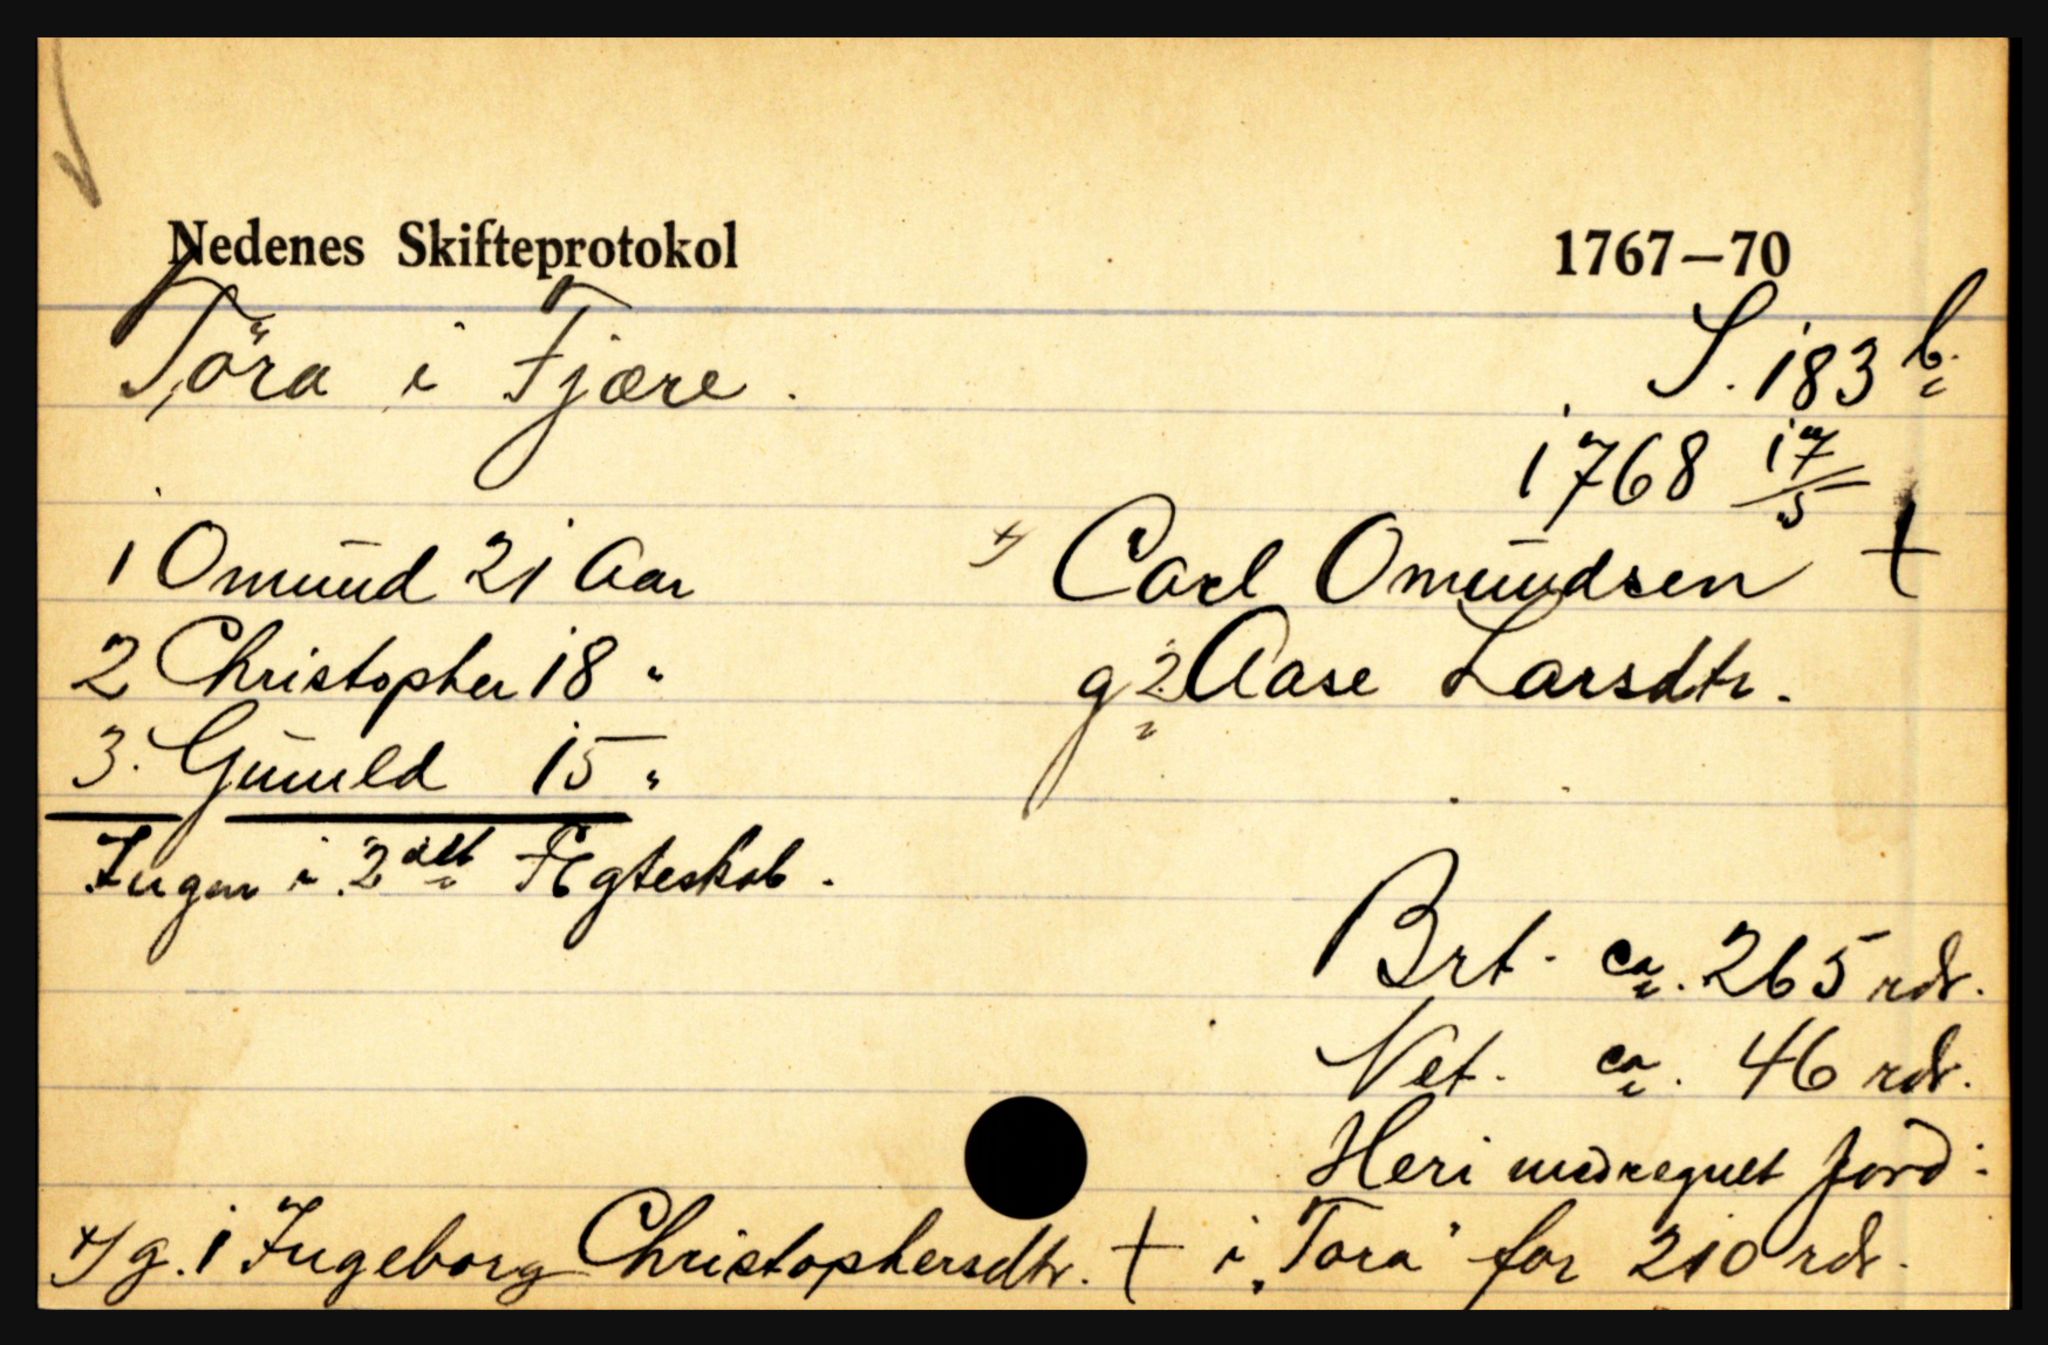 Nedenes Skifteprotokol 1767—70
Töra i Fjære. S. 183 b.
1768 17/5
1 Omund 21 Aar +) Carl Omundsen †
2 Christopher 18 " g 2 Aase Larsdtr.
3. Gunuld 15 "
Ingen i 2det Ægteskab.
Brt. ca. 265 rdr.
Net. ca. 46 rdr.
Heri medregnet Jord:
+) g. 1 Ingeborg Christophersdtr. † i "Tora" for 210 rdr.